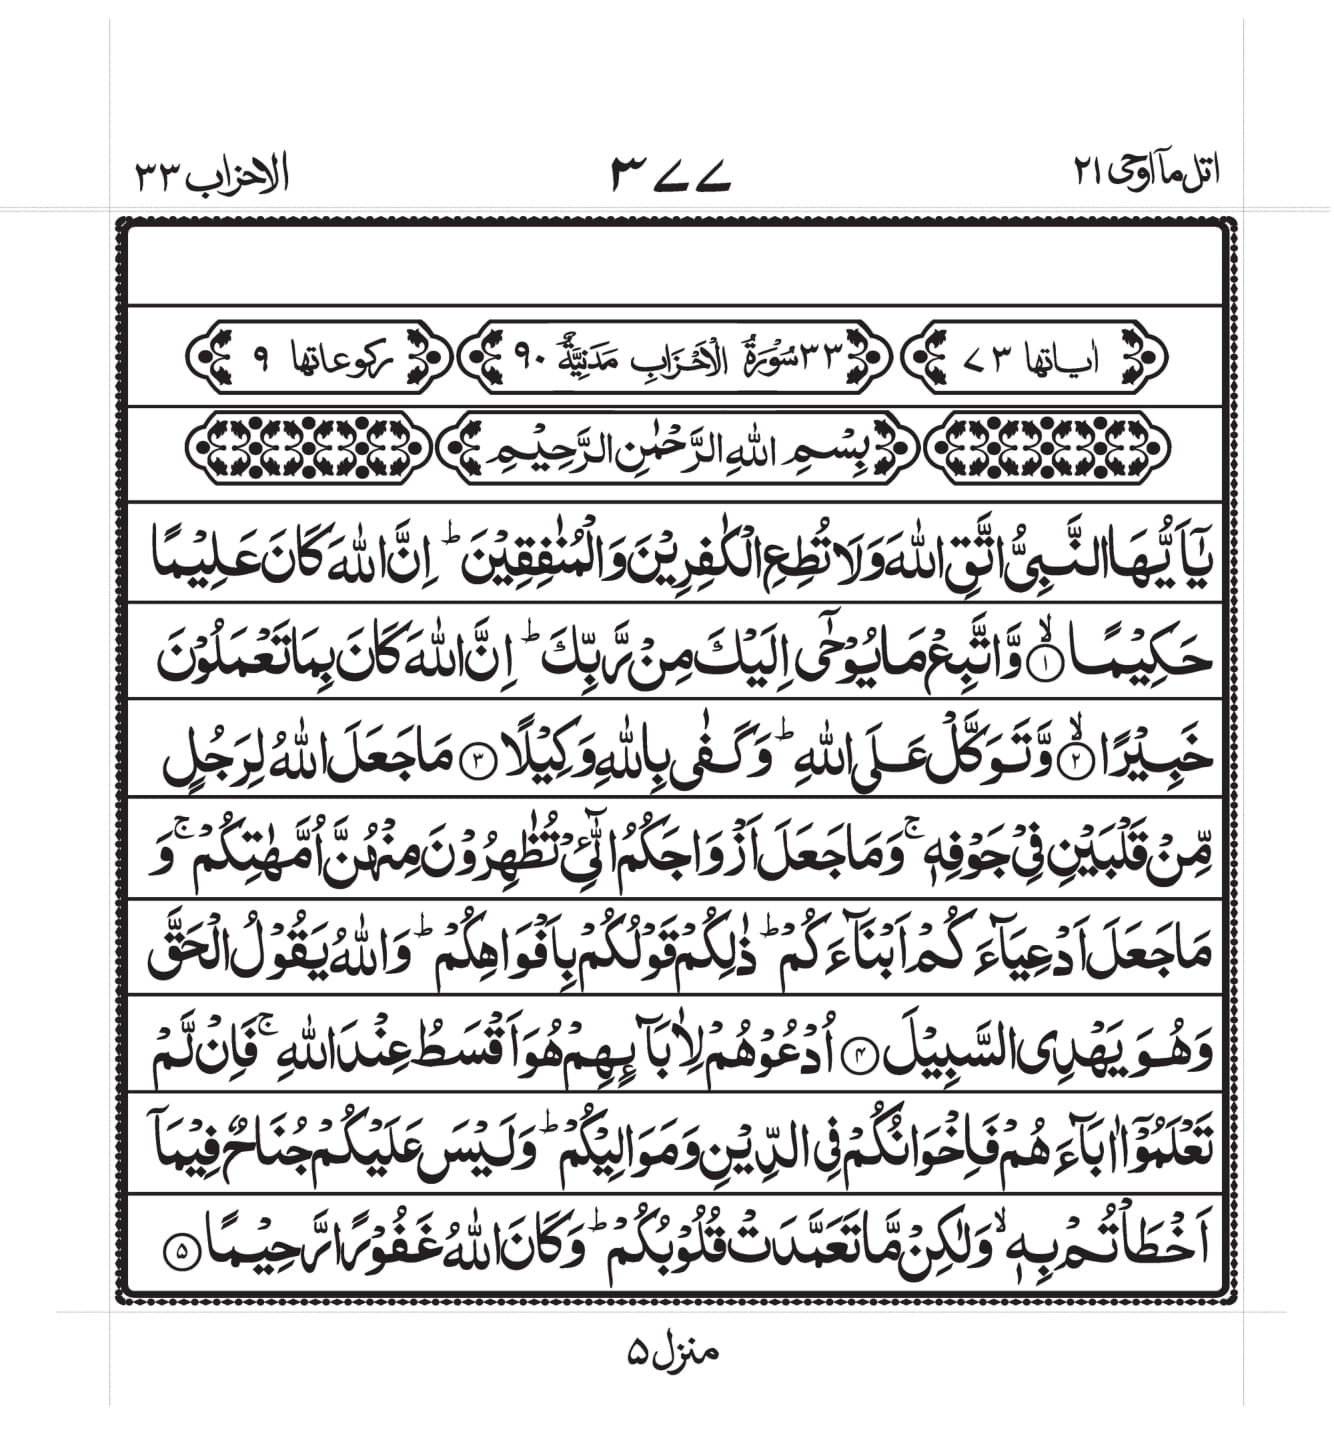 اتل مآ اوحی ۲۱ ۳۷۷ الاحزاب ۳۳
اٰیاتها ۷۳ ۳۳ سُوْرَةُ الْاَحْزَابِ مَدَنِيَّةٌ ۹۰ رکوعاتها ۹
بِسْمِ اللّٰهِ الرَّحْمٰنِ الرَّحِيْمِ
يٰٓاَيُّهَا النَّبِىُّ اتَّقِ اللّٰهَ وَلَا تُطِعِ الْكٰفِرِيْنَ وَالْمُنٰفِقِيْنَ ؕ اِنَّ اللّٰهَ كَانَ عَلِيْمًا
حَكِيْمًا ۙ‏﴿۱﴾ وَّاتَّبِعْ مَا يُوْحٰٓى اِلَيْكَ مِنْ رَّبِّكَ ؕ اِنَّ اللّٰهَ كَانَ بِمَا تَعْمَلُوْنَ
خَبِيْرًا ۙ‏﴿۲﴾ وَّتَوَكَّلْ عَلَى اللّٰهِ ؕ وَكَفٰى بِاللّٰهِ وَكِيْلًا ﴿۳﴾ مَا جَعَلَ اللّٰهُ لِرَجُلٍ
مِّنْ قَلْبَيْنِ فِىْ جَوْفِهٖ ۚ وَمَا جَعَلَ اَزْوَاجَكُمُ الّٰٓـئِْ تُظٰهِرُوْنَ مِنْهُنَّ اُمَّهٰتِكُمْ ۚ وَ
مَا جَعَلَ اَدْعِيَآءَكُمْ اَبْنَآءَكُمْ ؕ ذٰلِكُمْ قَوْلُكُمْ بِاَفْوَاهِكُمْ ؕ وَاللّٰهُ يَقُوْلُ الْحَقَّ
وَهُوَ يَهْدِى السَّبِيْلَ ﴿۴﴾ اُدْعُوْهُمْ لِاٰبَآئِهِمْ هُوَ اَقْسَطُ عِنْدَ اللّٰهِ ۚ فَاِنْ لَّمْ
تَعْلَمُوْٓا اٰبَآءَهُمْ فَاِخْوَانُكُمْ فِى الدِّيْنِ وَمَوَالِيْكُمْ ؕ وَلَيْسَ عَلَيْكُمْ جُنَاحٌ فِيْمَآ
اَخْطَاْتُمْ بِهٖ ۙ وَلٰكِنْ مَّا تَعَمَّدَتْ قُلُوْبُكُمْ ؕ وَكَانَ اللّٰهُ غَفُوْرًا رَّحِيْمًا ﴿۵﴾
منزل ۵